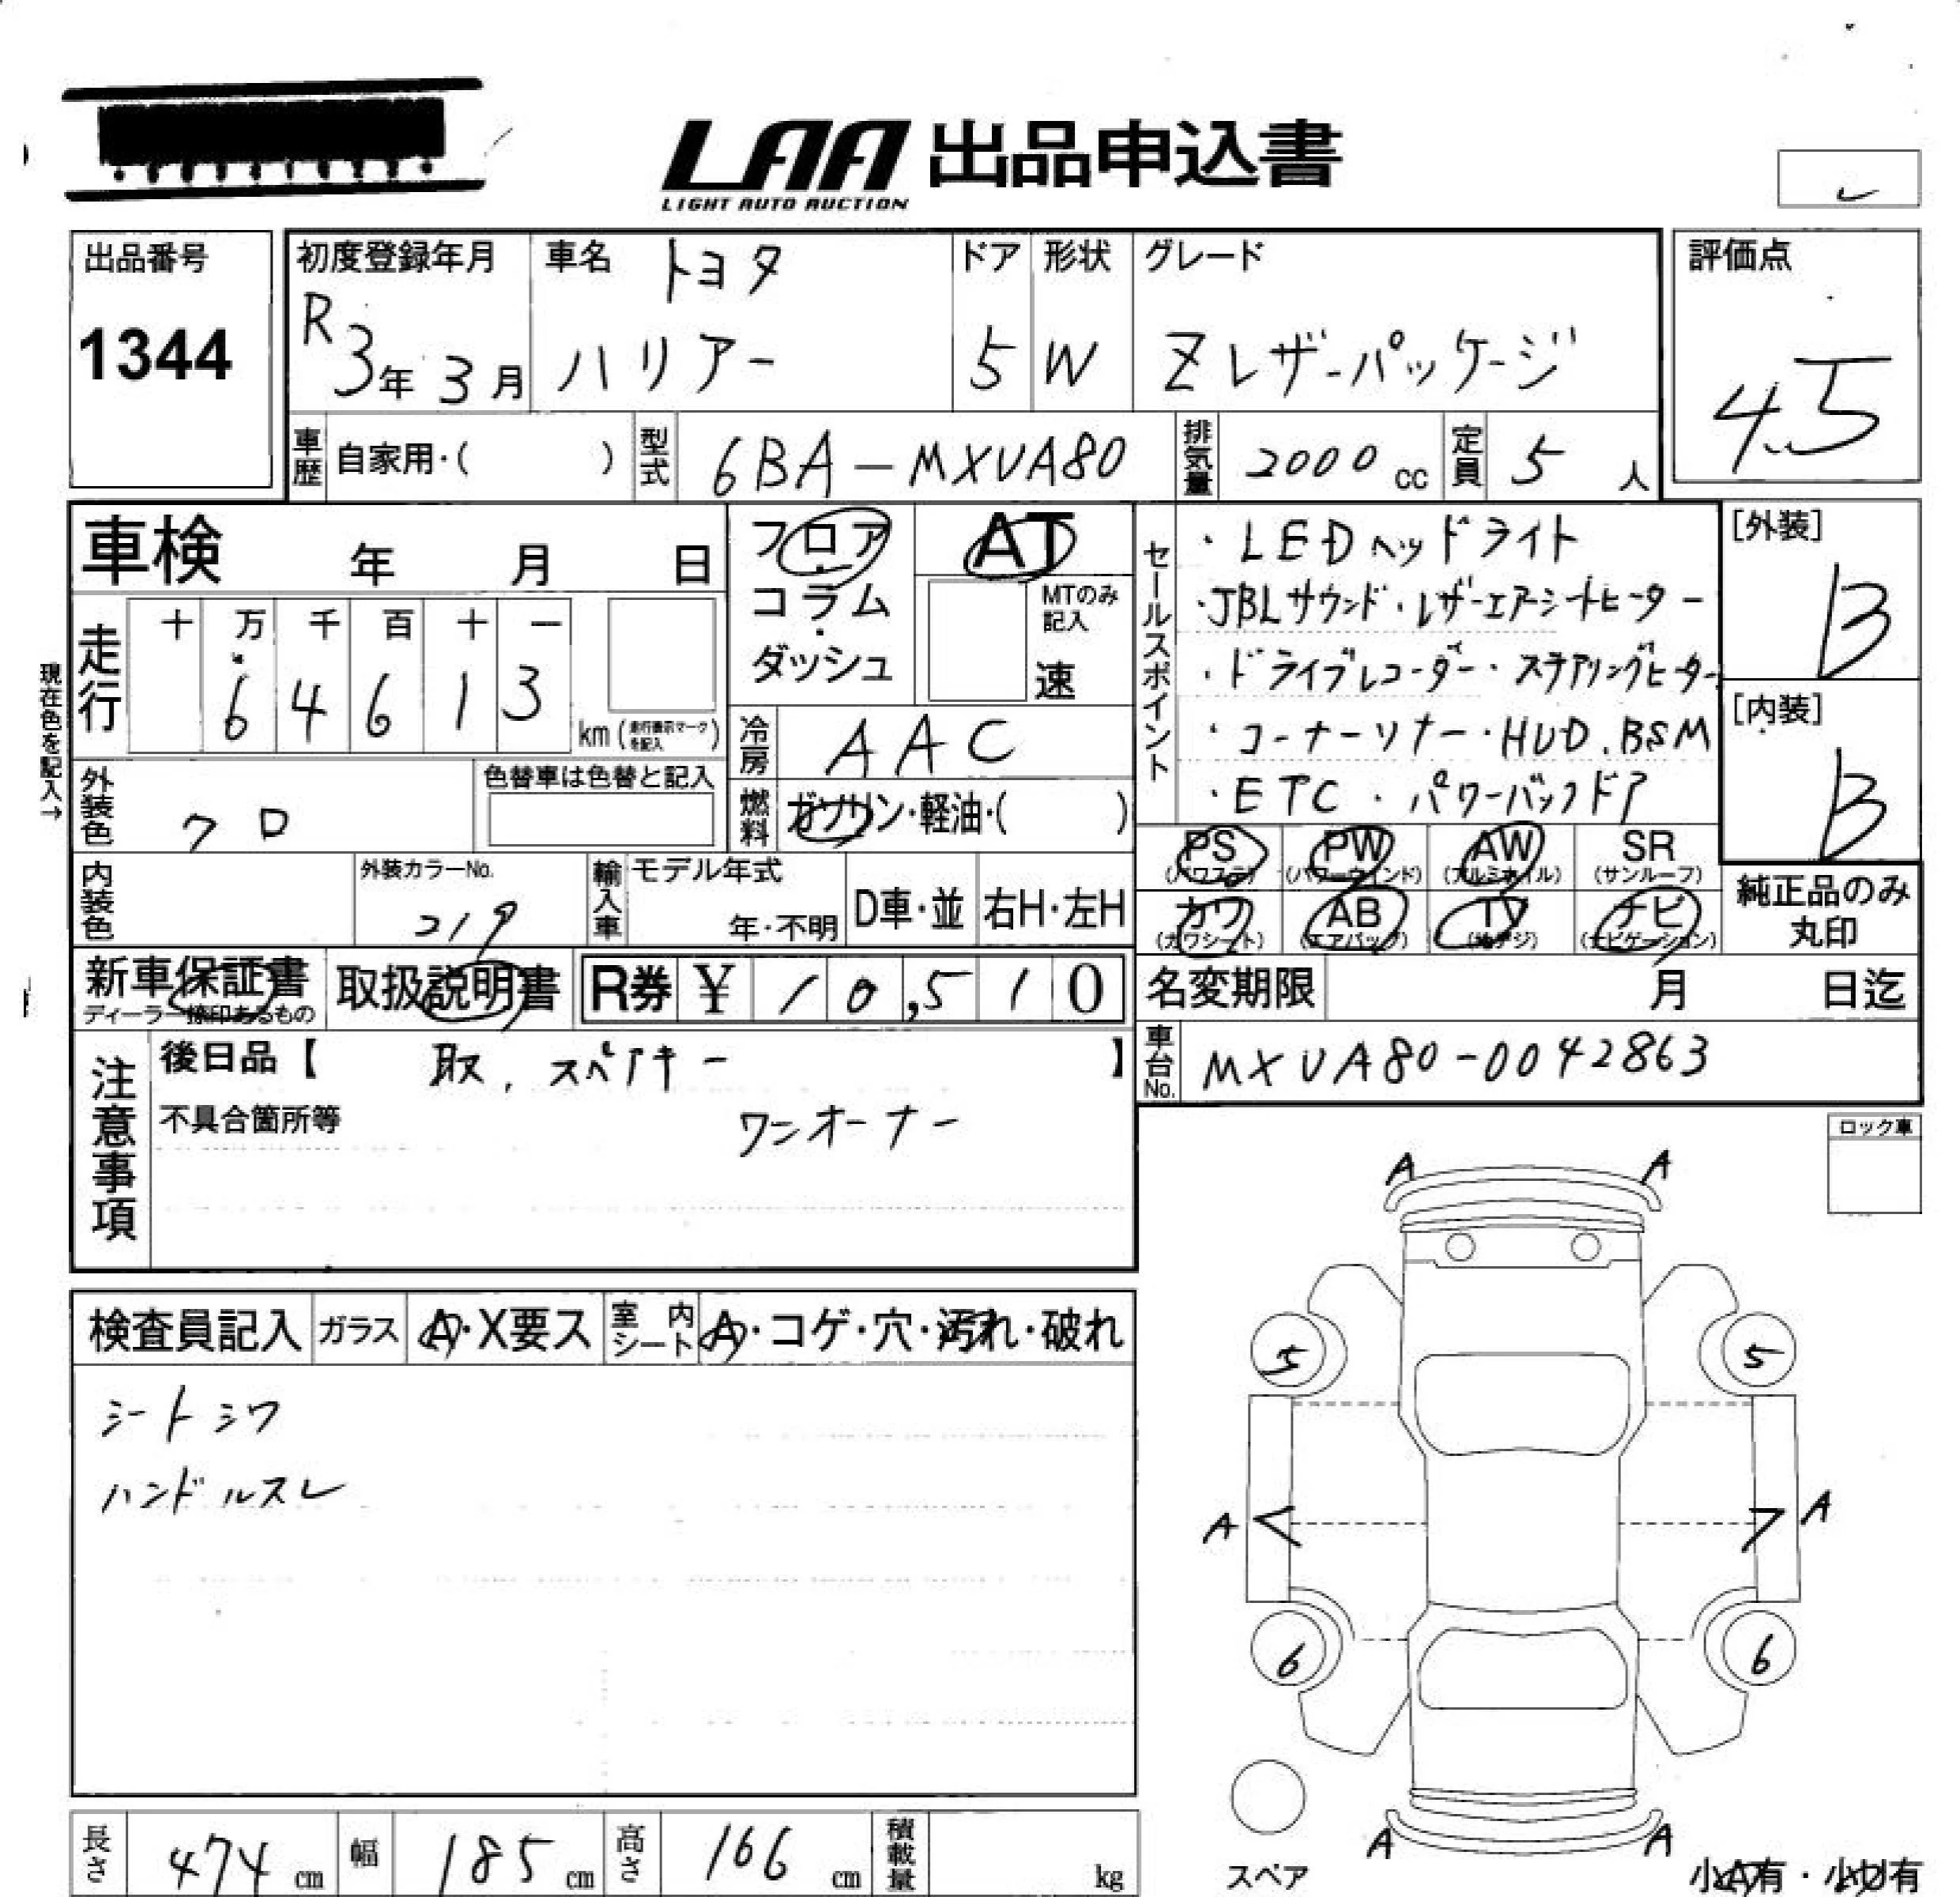 LAA 出品申込書
LIGHT AUTO AUCTION
出品番号
1344
初度登録年月
R3年3月
車名 トヨタ
ハリアー
ドア
5
形状
W
グレード
Zレザーパッケージ
評価点
4.5
車歴 自家用・( )
型式 6BA-MXUA80
排気量 2000 cc
定員 5 人
車検 年 月 日
フロア・コラム・ダッシュ
AT
MTのみ記入
速
現在色を記入→
走行
十 万 千 百 十 一
6 4 6 1 3
km (走行表示マークを記入)
冷房 AAC
外装色 クロ
色替車は色替と記入
燃料 ガソリン・軽油・( )
セールスポイント
・LEDヘッドライト
・JBLサウンド・レザーエアーシートヒーター
・ドライブレコーダー・ステアリングヒーター
・コーナーソナー・HUD.BSM
・ETC・パワーバックドア
[外装]
B
[内装]
B
内装色
外装カラーNo.
219
輸入車
モデル年式
年・不明
D車・並
右H・左H
PS (パワステ)
PW (パワーウインド)
AW (アルミホイル)
SR (サンルーフ)
カワ (カワシート)
AB (エアバッグ)
TV (地デジ)
ナビ (ナビゲーション)
純正品のみ
丸印
新車保証書
ディーラー捺印あるもの
取扱説明書
R券 ¥ 10,510
名変期限 月 日迄
車台No. MXUA80-0042863
注意事項
後日品【 取、スペアキー 】
不具合箇所等
ワンオーナー
ロック車
検査員記入
ガラス A・X要ス
室内シート A・コゲ・穴・汚れ・破れ
シートシワ
ハンドルスレ
A A
5 5
A A
6 6
A A
スペア
小A有・小U有
長さ 474 cm
幅 185 cm
高さ 166 cm
積載量 kg